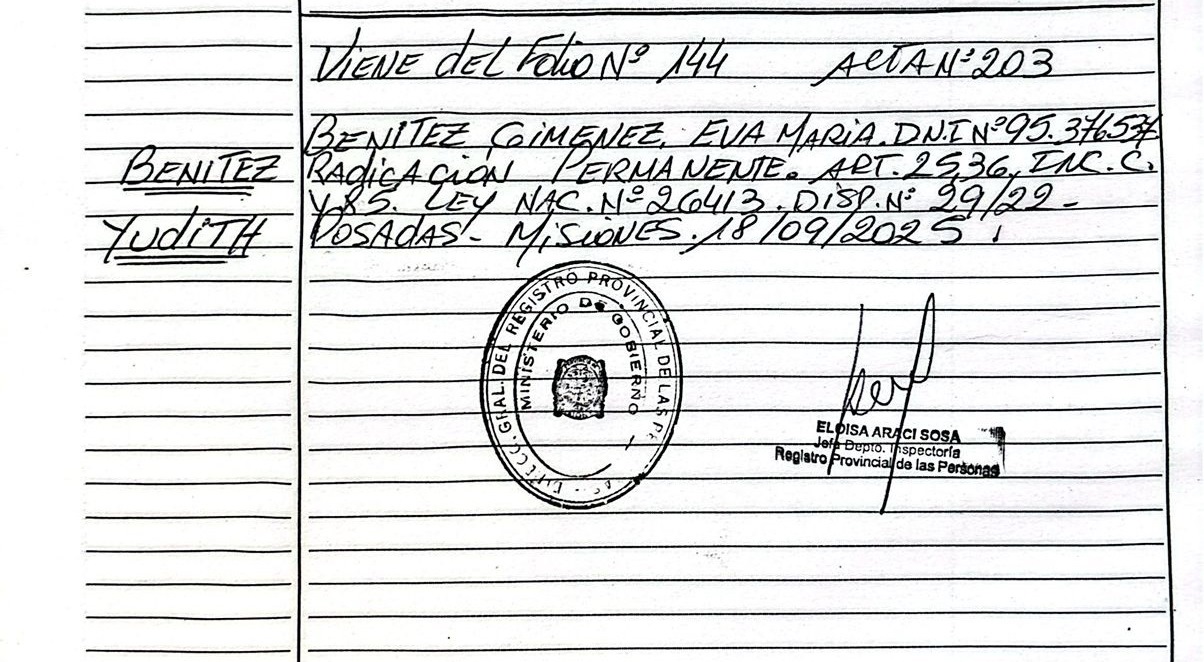 VIENE del Folio Nº 144 ACTA Nº 203
BENITEZ GIMENEZ, EVA MARIA. D.N.I Nº 95.376.537
BENITEZ
RADICACIÓN PERMANENTE. ART. 25,36, INC. C.
Y 85. LEY NAC. Nº 26413. DISP. Nº 29/22 -
YudITH
POSADAS - MISIONES. 18/09/2025
GRAL. DEL REGISTRO PROVINCIAL DE LAS PE
MINISTERIO DE GOBIERNO
ELOISA ARACI SOSA
Jefa Depto. Inspectoría
Registro Provincial de las Personas